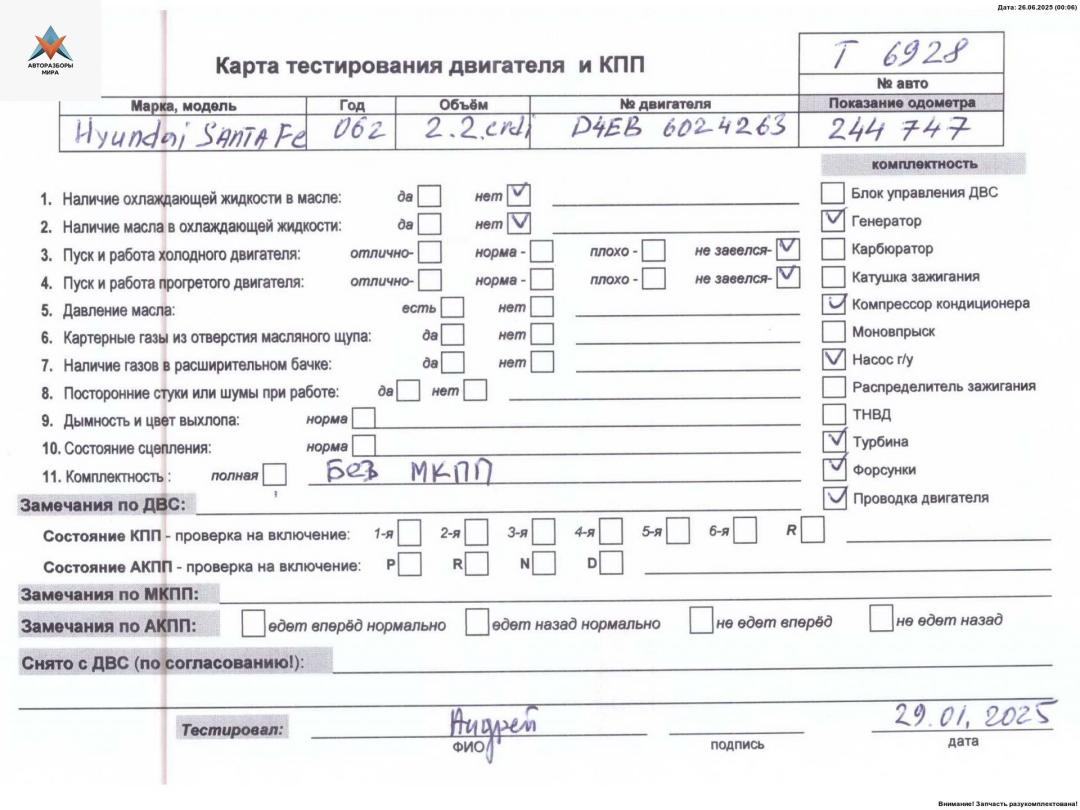 Дата: 26.06.2025 (00:06)
АВТОРАЗБОРЫ
МИРА
Карта тестирования двигателя и КПП
T 6928
№ авто
Марка, модель Год Объём № двигателя Показание одометра
Hyundai SANTA Fe 062 2.2.crdi D4EB 6024263 244 747
комплектность
1. Наличие охлаждающей жидкости в масле: да нет
Блок управления ДВС
2. Наличие масла в охлаждающей жидкости: да нет
Генератор
3. Пуск и работа холодного двигателя: отлично- норма - плохо - не завелся-
Карбюратор
4. Пуск и работа прогретого двигателя: отлично- норма - плохо - не завелся-
Катушка зажигания
5. Давление масла: есть нет
Компрессор кондиционера
6. Картерные газы из отверстия масляного щупа: да нет
Моновпрыск
7. Наличие газов в расширительном бачке: да нет
Насос г/у
8. Посторонние стуки или шумы при работе: да нет
Распределитель зажигания
9. Дымность и цвет выхлопа: норма
ТНВД
10. Состояние сцепления: норма
Турбина
11. Комплектность : полная Без МКПП
Форсунки
Замечания по ДВС:
Проводка двигателя
Состояние КПП - проверка на включение: 1-я 2-я 3-я 4-я 5-я 6-я R
Состояние АКПП - проверка на включение: P R N D
Замечания по МКПП:
Замечания по АКПП: едет вперёд нормально едет назад нормально не едет вперёд не едет назад
Снято с ДВС (по согласованию!):
Тестировал: Андрей 29.01.2025
ФИО подпись дата
Внимание! Запчасть разукомплектована!